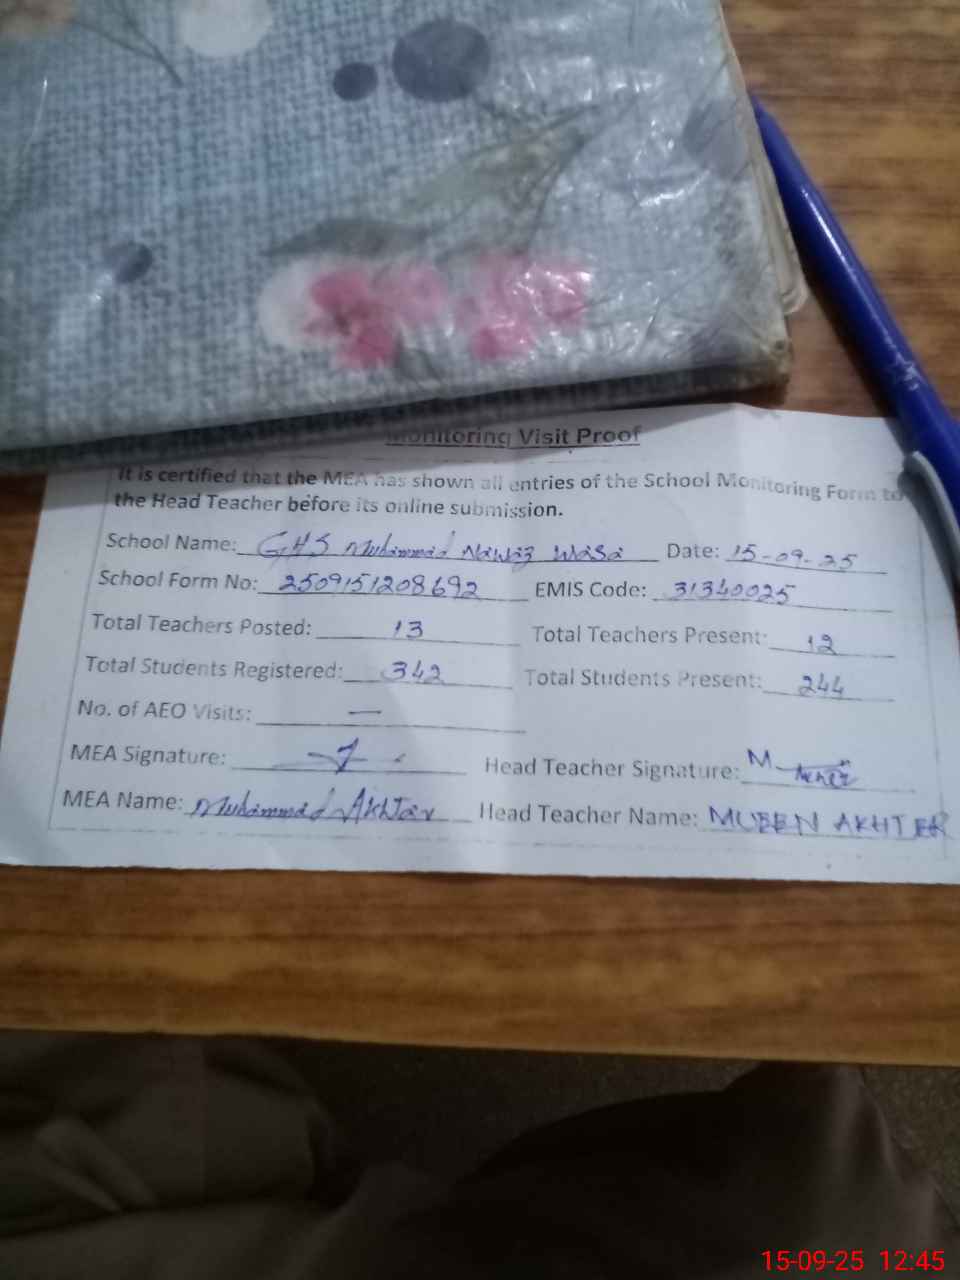 Monitoring Visit Proof
It is certified that the MEA has shown all entries of the School Monitoring Form to
the Head Teacher before its online submission.
School Name: GHS Muhammad Nawaz Wasa Date: 15-09-25
School Form No: 2509151208692 EMIS Code: 31340025
Total Teachers Posted: 13 Total Teachers Present: 12
Total Students Registered: 342 Total Students Present: 244
No. of AEO Visits: —
MEA Signature: Head Teacher Signature: M
MEA Name: Muhammad Akhtar Head Teacher Name: MUBEEN AKHTER
15-09-25 12:45